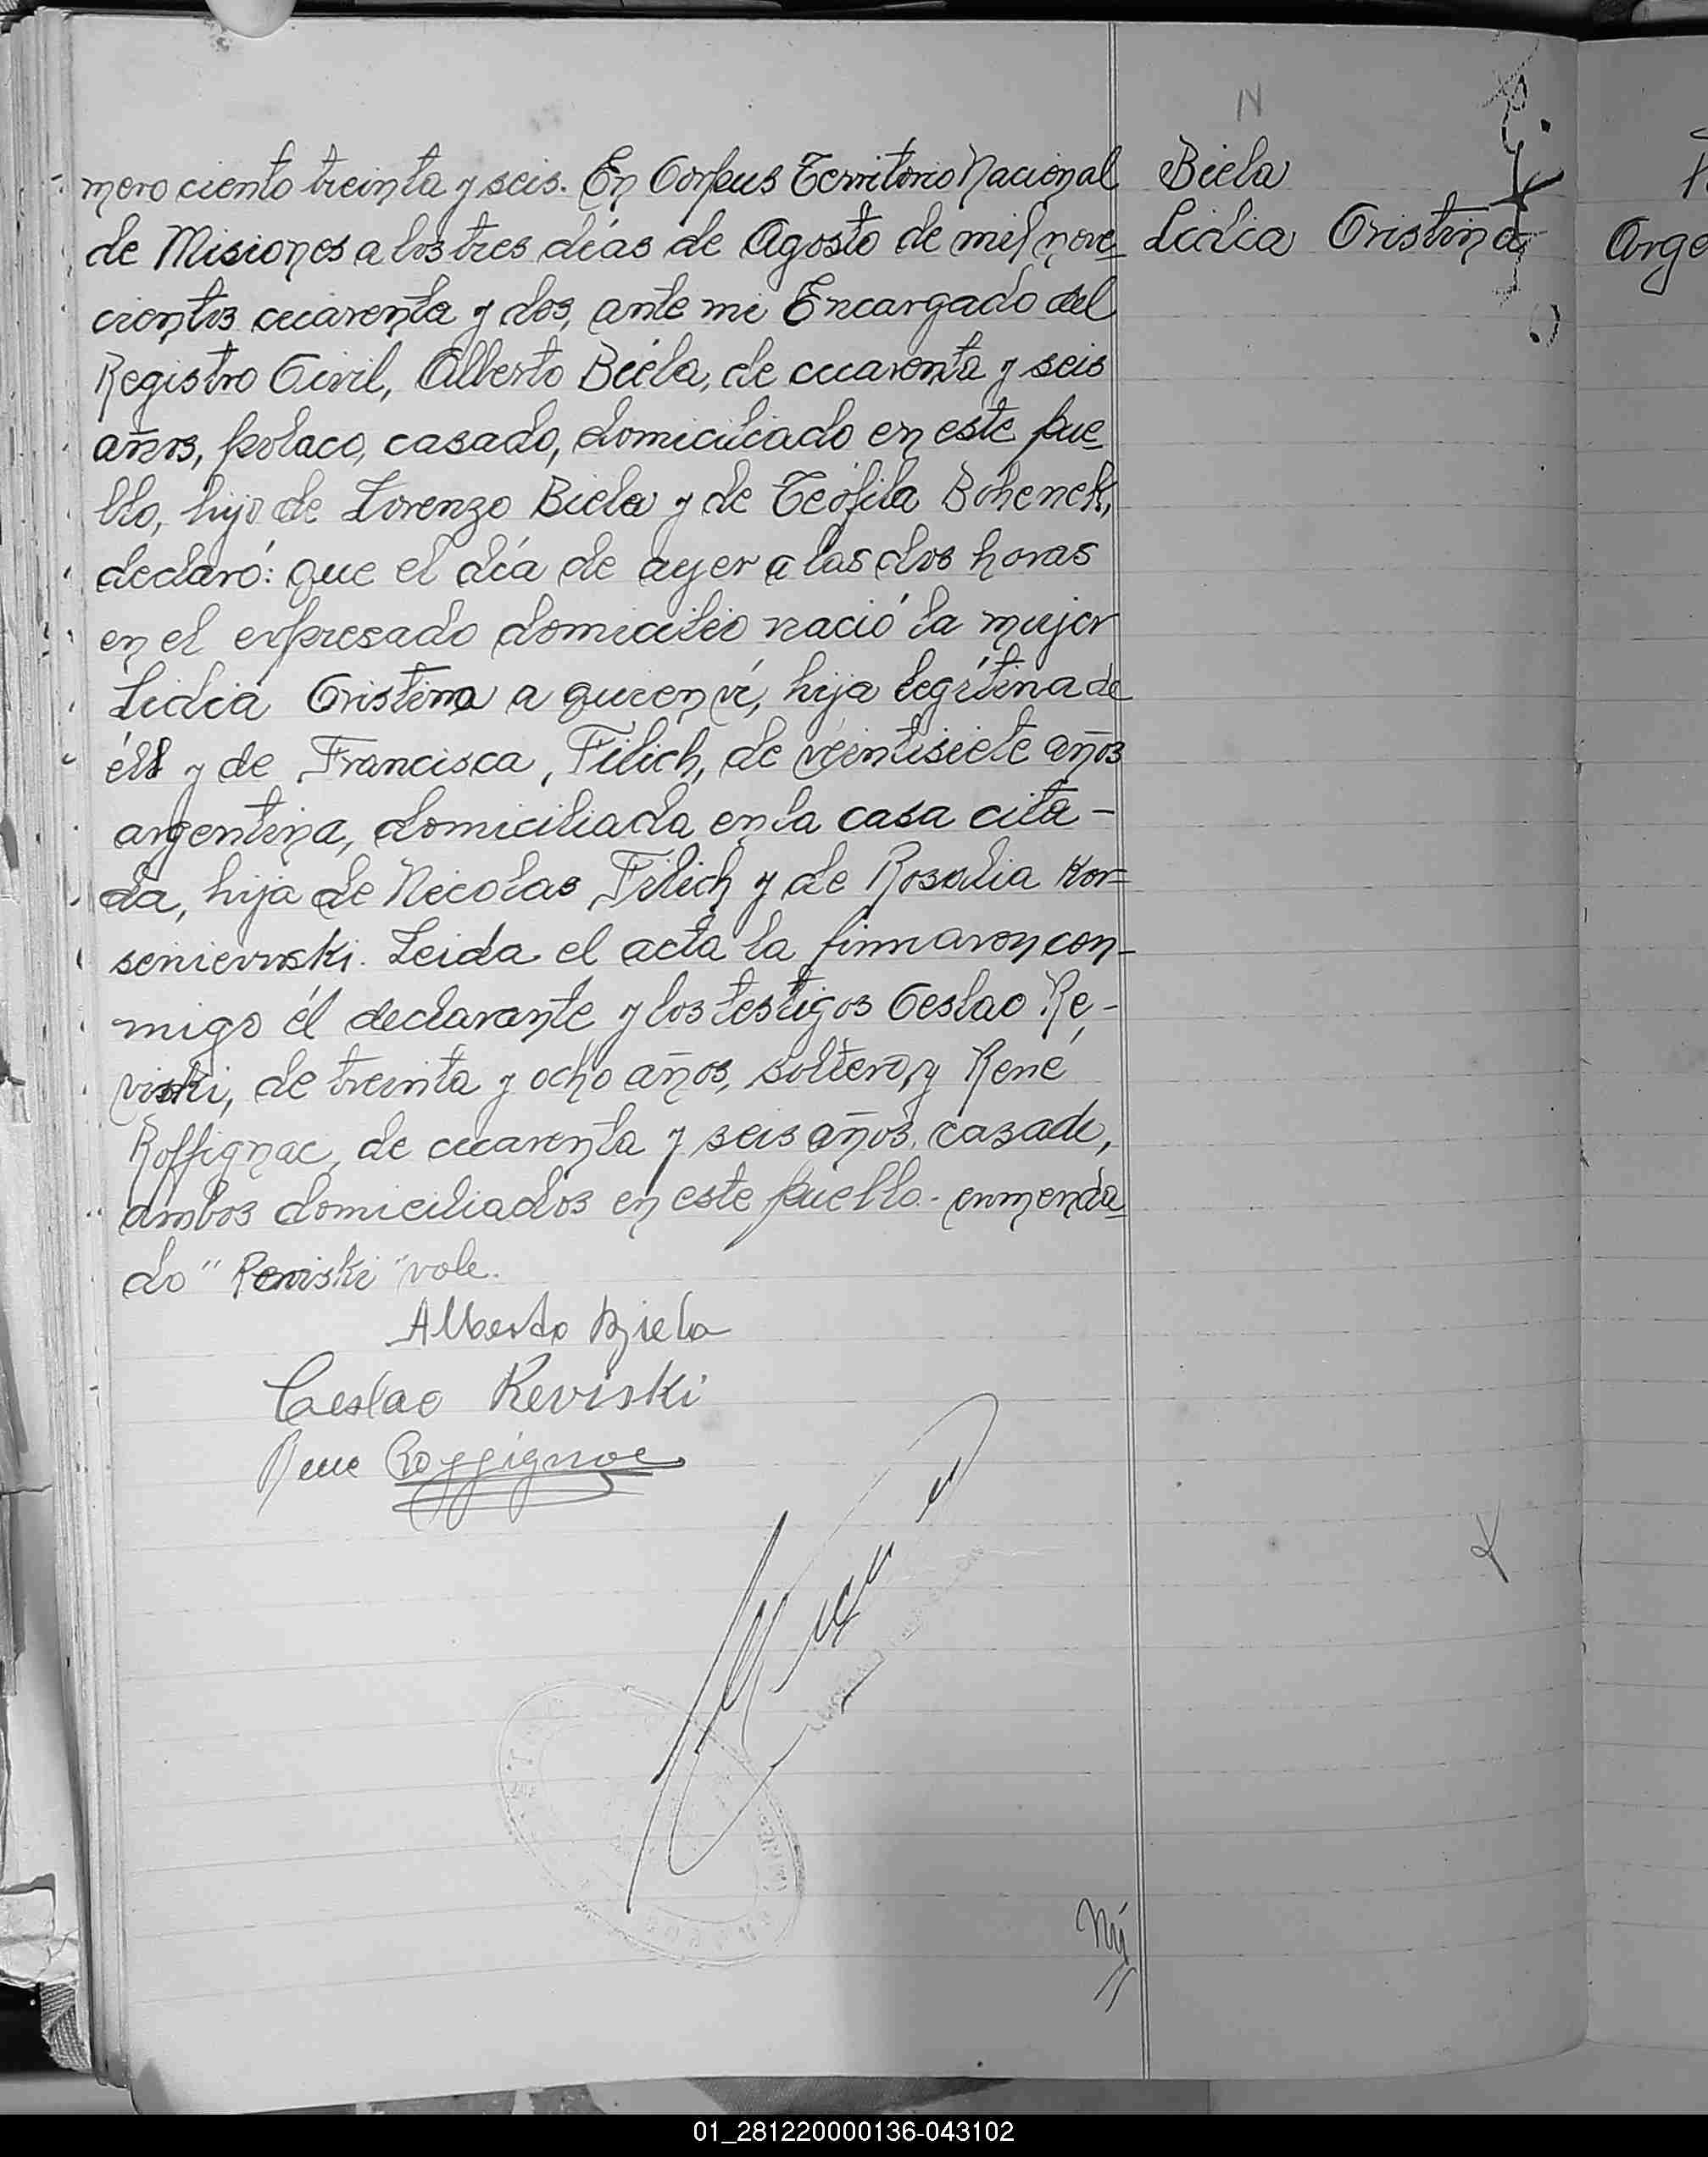 N
mero ciento treinta y seis. En Corpus Territorio Nacional
de Misiones a los tres días de Agosto de mil nove=
cientos cuarenta y dos, ante mi Encargado del
Registro Civil, Alberto Biela, de cuarenta y seis
años, polaco, casado, domiciliado en este pue=
blo, hijo de Lorenzo Biela y de Teófila Bohenek,
declaró: que el día de ayer a las dos horas
en el expresado domicilio nació la mujer
Lidia Cristina a quien ví, hija legítima de
él y de Francisca Filich, de veintisiete años
argentina, domiciliada en la casa cita-
da, hija de Nicolas Filich y de Rosalia Kor=
senievski. Leida el acta la firmaron con-
migo él declarante y los testigos Ceslao Re-
viski, de treinta y ocho años, soltero, y René
Roffignac, de cuarenta y seis años, casado,
ambos domiciliados en este pueblo.- enmenda=
do "Reviski" vale.
Alberto Biela
Ceslao Reviski
Rene Roffignac
Biela
Lidia Cristina
Arge
01_281220000136-043102